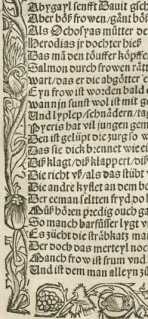 Abygayl senfft Dauit gsch
Aber böß frowen / gänt böß
Als Ochosyas mütter
Herodias jr dochter hieß
Das man den töuffer köpffe
Salmon durch frowen rätt
Wart / das er die abgötter
Eyn frow ist worden bald
wann jn sunst wol ist mit
Und lyplep / schnädern / tag
Pyeris hat vil jungen
Den ist gelüpt die zung so
Das sie dick brennet wie
Diß klagt / diß klappert / diß
Die richt vß / als das stübt
Die ander kyflet an dem
Der eeman seltten fryd
Müß hören predig ouch
So manch barfüsser lygt
Es zücht die sträbkatz
Der doch das merteyl
Manch frow ist frum vnd
Und ist dem man alleyn zů